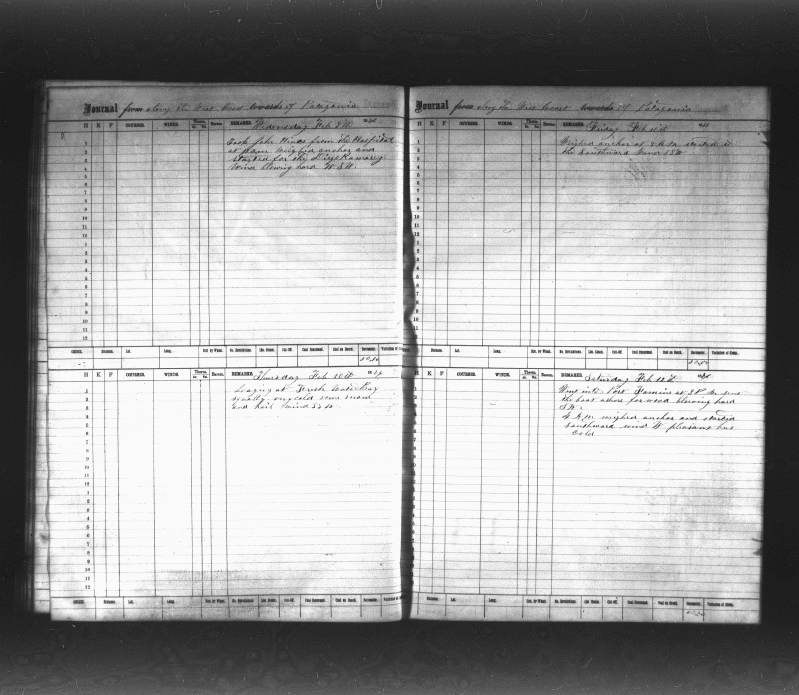 Journal from along the West Coast towards of Patagonia
H K F COURSES. WINDS. Therm. Barom. REMARKS. Wednesday Feb 9th
Took John Hinds from the Hospital
at noon weighed anchor and
Started for the
Wind blowing hard W S W.
COURSE. Distance. Lat. Long. Dist. by Wheel. No. Revolutions. Lbs. Steam. Cut-Off. Coal Consumed. Coal on Board. Barometer. Variation of
30.20
H K F COURSES. WINDS. Therm. Barom. REMARKS. Thursday Feb 10th
Laying at Fresh Water Bay
squally very cold some snow
and hail Wind S S W
COURSE. Distance. Lat. Long. Dist. by Wheel. No. Revolutions. Lbs. Steam. Cut-Off. Coal Consumed. Coal on Board. Barometer. Variation of
Journal from along the West Coast towards of Patagonia
H K F COURSES. WINDS. Therm. Barom. REMARKS. Friday Feb 11th
Weighed anchor at 8 A.M. started to
the Southward
Distance. Lat. Long. Dist. by Wheel. No. Revolutions. Lbs. Steam. Cut-Off. Coal Consumed. Coal on Board. Barometer. Variation of Comp.
H K F COURSES. WINDS. Therm. Barom. REMARKS. Saturday Feb 12th
Went into Port Famine at 3 P. M. sent
the boat ashore for wood blowing hard
S W.
4 A.M. weighed anchor and started
southward wind W pleasant but
Cold
Distance. Lat. Long. Dist. by Wheel. No. Revolutions. Lbs. Steam. Cut-Off. Coal Consumed. Coal on Board. Barometer. Variation of Comp.